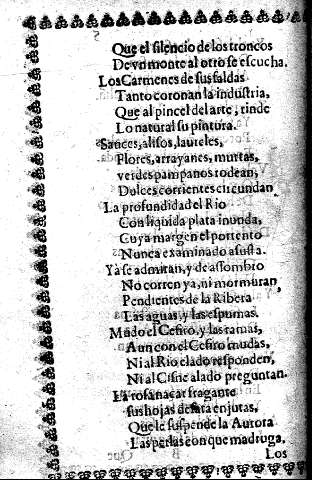 Que el silencio de los troncos
De vn monte al otro se escucha.
Los Carmenes de sus faldas
Tanto coronan la industria,
Que al pincel del arte, rinde
Lo natural su pintura.
Sauces, alisos, laureles,
Flores, arrayanes, murtas,
verdes pampanos rodean,
Dulces corrientes circundan
La profundidad el Rio
Con liquida plata inunda,
Cuya margen el portento
Nunca examinado asusta.
Ya se admiran, y de assombro
No corren ya, ni mormuran,
Pendientes de la Ribera
Las aguas, y las espumas.
Mudo el Cefiro, y las ramas,
Aun con el Cefiro mudas,
Ni al Rio elado responden,
Ni al Cisne alado preguntan.
La rosa nacar fragante
sus hojas desata enjutas,
Que le suspende la Aurora
Las perlas con que madruga.
Los